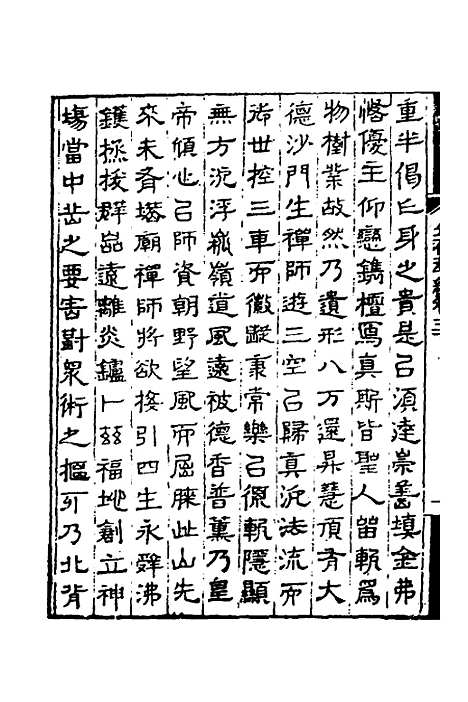 重半偈亡身之貴是㠯湏逹崇善填金弗
悋優主仰戀鐫檀寫真斯皆聖人留軌為
物樹業故然乃遺形八万還昇慧頂有大
德沙門生禪師遊三空㠯歸真沉法流而
御世控三車而徽蹤秉常樂㠯偃軌隱顯
無方沉浮嵩嶺道風遠被德香普薰乃皇
帝傾心㠯師資朝野望風而屈膝此山先
來未有塔廟禪師將欲接引四生永辭沸
鑊拯拔群品遠離炎鑪卜茲福地創立神
場當中岳之要害對衆術之樞可乃北背